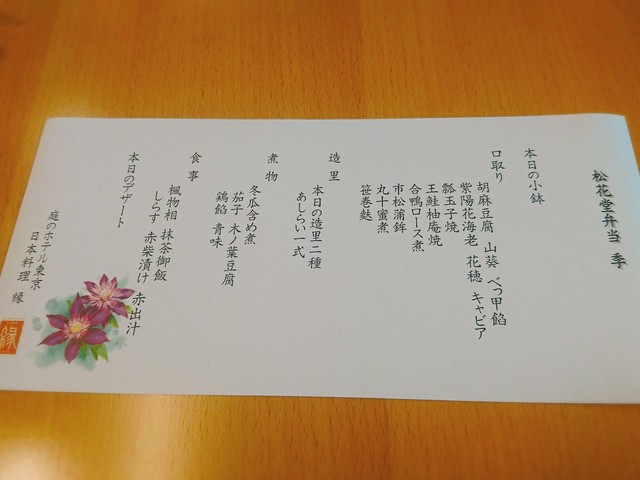 松花堂弁当 季
本日の小鉢
口取り
胡麻豆腐 山葵 べっ甲餡
紫陽花海老 花穂 キャビア
瓢玉子焼
王鮭柚庵焼
合鴨ロース煮
市松蒲鉾
丸十蜜煮
笹巻麩
造里
本日の造里二種
あしらい一式
煮物
冬瓜含め煮
茄子 木ノ葉豆腐
鶏餡 青味
食事
楓物相 抹茶御飯
しらす 赤柴漬け 赤出汁
本日のデザート
庭のホテル東京
日本料理 縁
縁